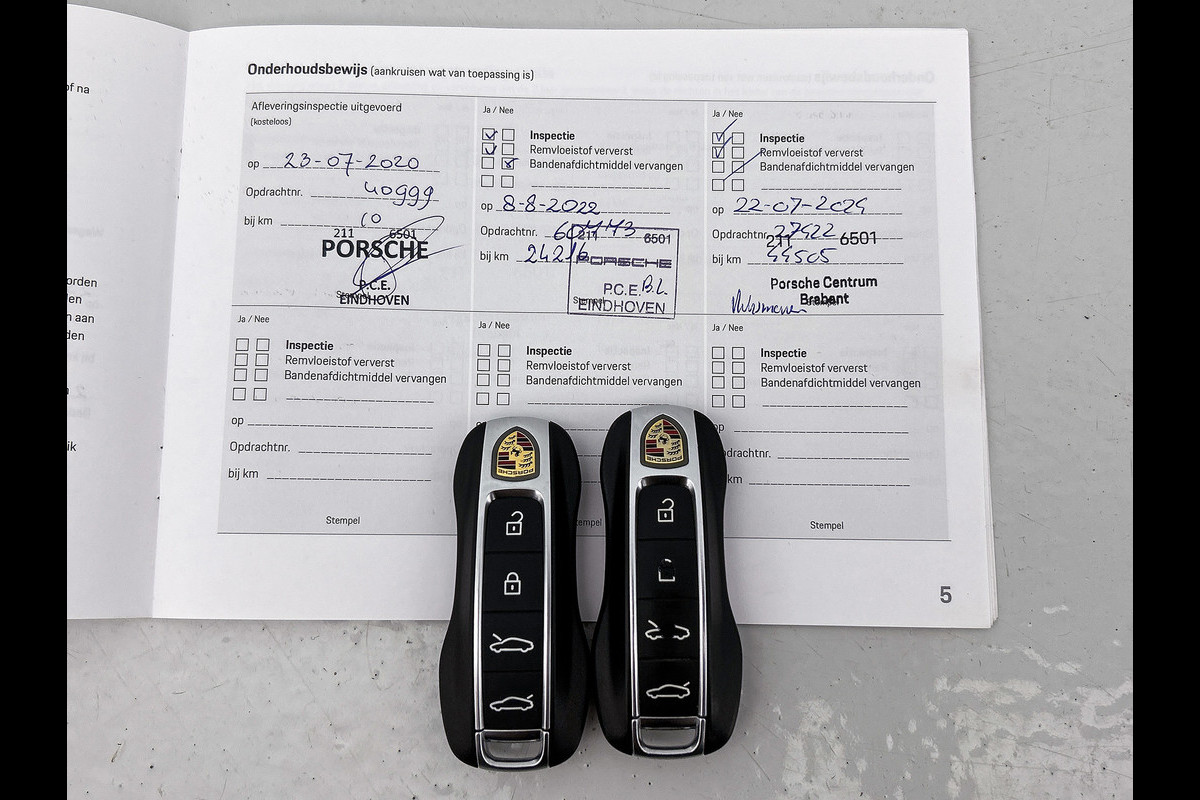 of na
orden
en
n aan
den
ik
Onderhoudsbewijs (aankruisen wat van toepassing is)
Afleveringsinspectie uitgevoerd
(kosteloos)
op 23-07-2020
Opdrachtnr. 40999
bij km 10
211 6501
PORSCHE
P.C.E.
Stempel
EINDHOVEN
Ja / Nee
Inspectie
Remvloeistof ververst
Bandenafdichtmiddel vervangen
op 8-8-2022
Opdrachtnr.
211 6501
bij km 24216
PORSCHE
P.C.E. B.L.
Stempel
EINDHOVEN
Ja / Nee
Inspectie
Remvloeistof ververst
Bandenafdichtmiddel vervangen
op 22-07-2024
Opdrachtnr. 27422
211 6501
bij km 44505
Porsche Centrum
Brabant
Stempel
Ja / Nee
Inspectie
Remvloeistof ververst
Bandenafdichtmiddel vervangen
op
Opdrachtnr.
bij km
Stempel
Ja / Nee
Inspectie
Remvloeistof ververst
Bandenafdichtmiddel vervangen
Stempel
Ja / Nee
Inspectie
Remvloeistof ververst
Bandenafdichtmiddel vervangen
op
Opdrachtnr.
km
Stempel
5
PORSCHE
PORSCHE